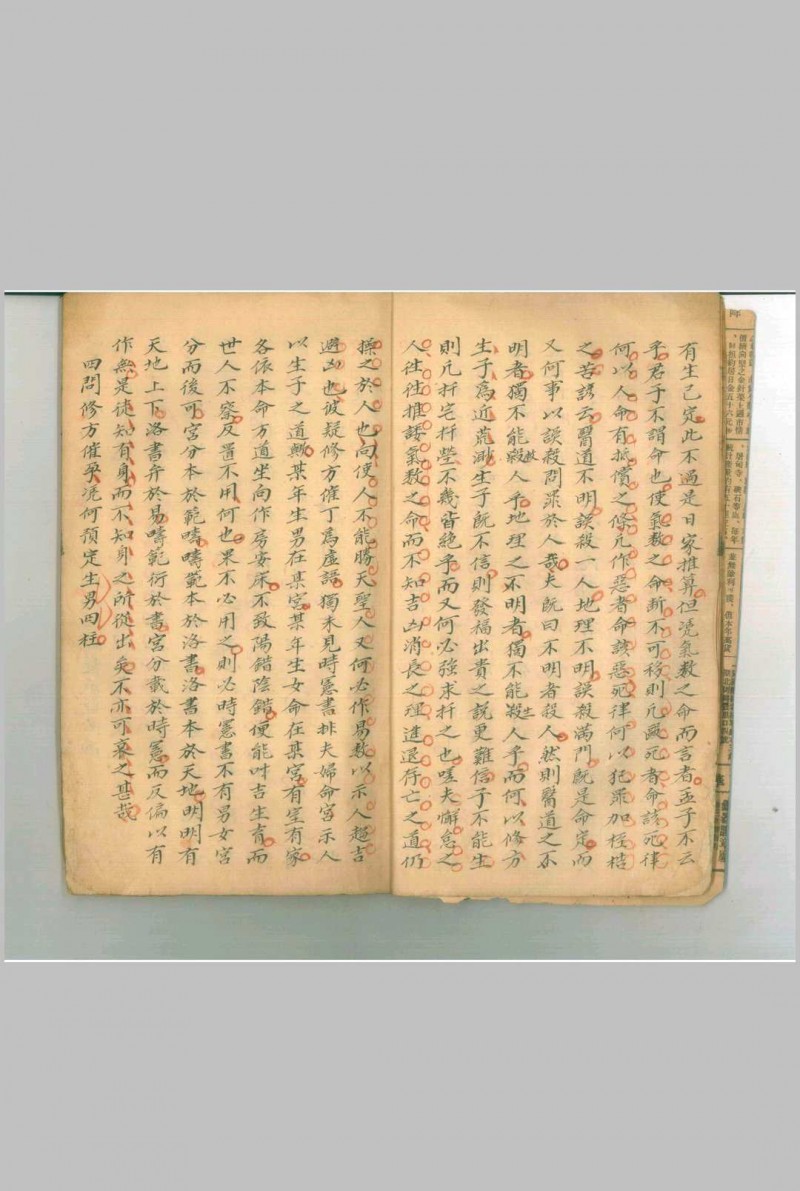 有生已定此不過是日家推算但凭氣數之命而言者孟子不云
乎君子不謂命也使氣數之命斷不可移則凡毆死者命該死律
何以人命有抵償之條凡作惡者命該惡死律何以犯罪加桎梏
之苦諺云醫道不明誤殺一人地理不明誤殺滿門既是命定而
又何事以誤殺問罪於人哉夫既曰不明者殺人然則醫道之不
明者獨不能救人乎地理之不明者獨不能生人乎而何以修方
生子為近荒渺生子既不信則發福出貴之說更難信子不能生
則凡扦宅扦塋不幾皆絕乎而又何必強求扦之也嗟夫懈怠之
人往往推諉氣數之命而不知吉凶消長之理進退存亡之道仍
操之於人也向使人不能勝天聖人又何必作易教以示人趨吉
避凶也彼疑修方催丁為虛語獨未見時憲書排夫婦命宮示人
以生子之道歟某年生男在某宮某年生女命在某宮有室有家
各依本命方道坐向作房安床不致陽錯陰錯便能叶吉生育而
世人不察反置不用何也果不必用之則必時憲書不有男女宮
分而後可宮分本於範疇疇範本於洛書洛書本於天地明明有
天地上下洛書弁於易疇範衍於書宮分載於時憲而反偏以有
作無是徒知有身而不知身之所從出矣不亦可哀之甚哉
四問修方催孕凭何預定生男四柱